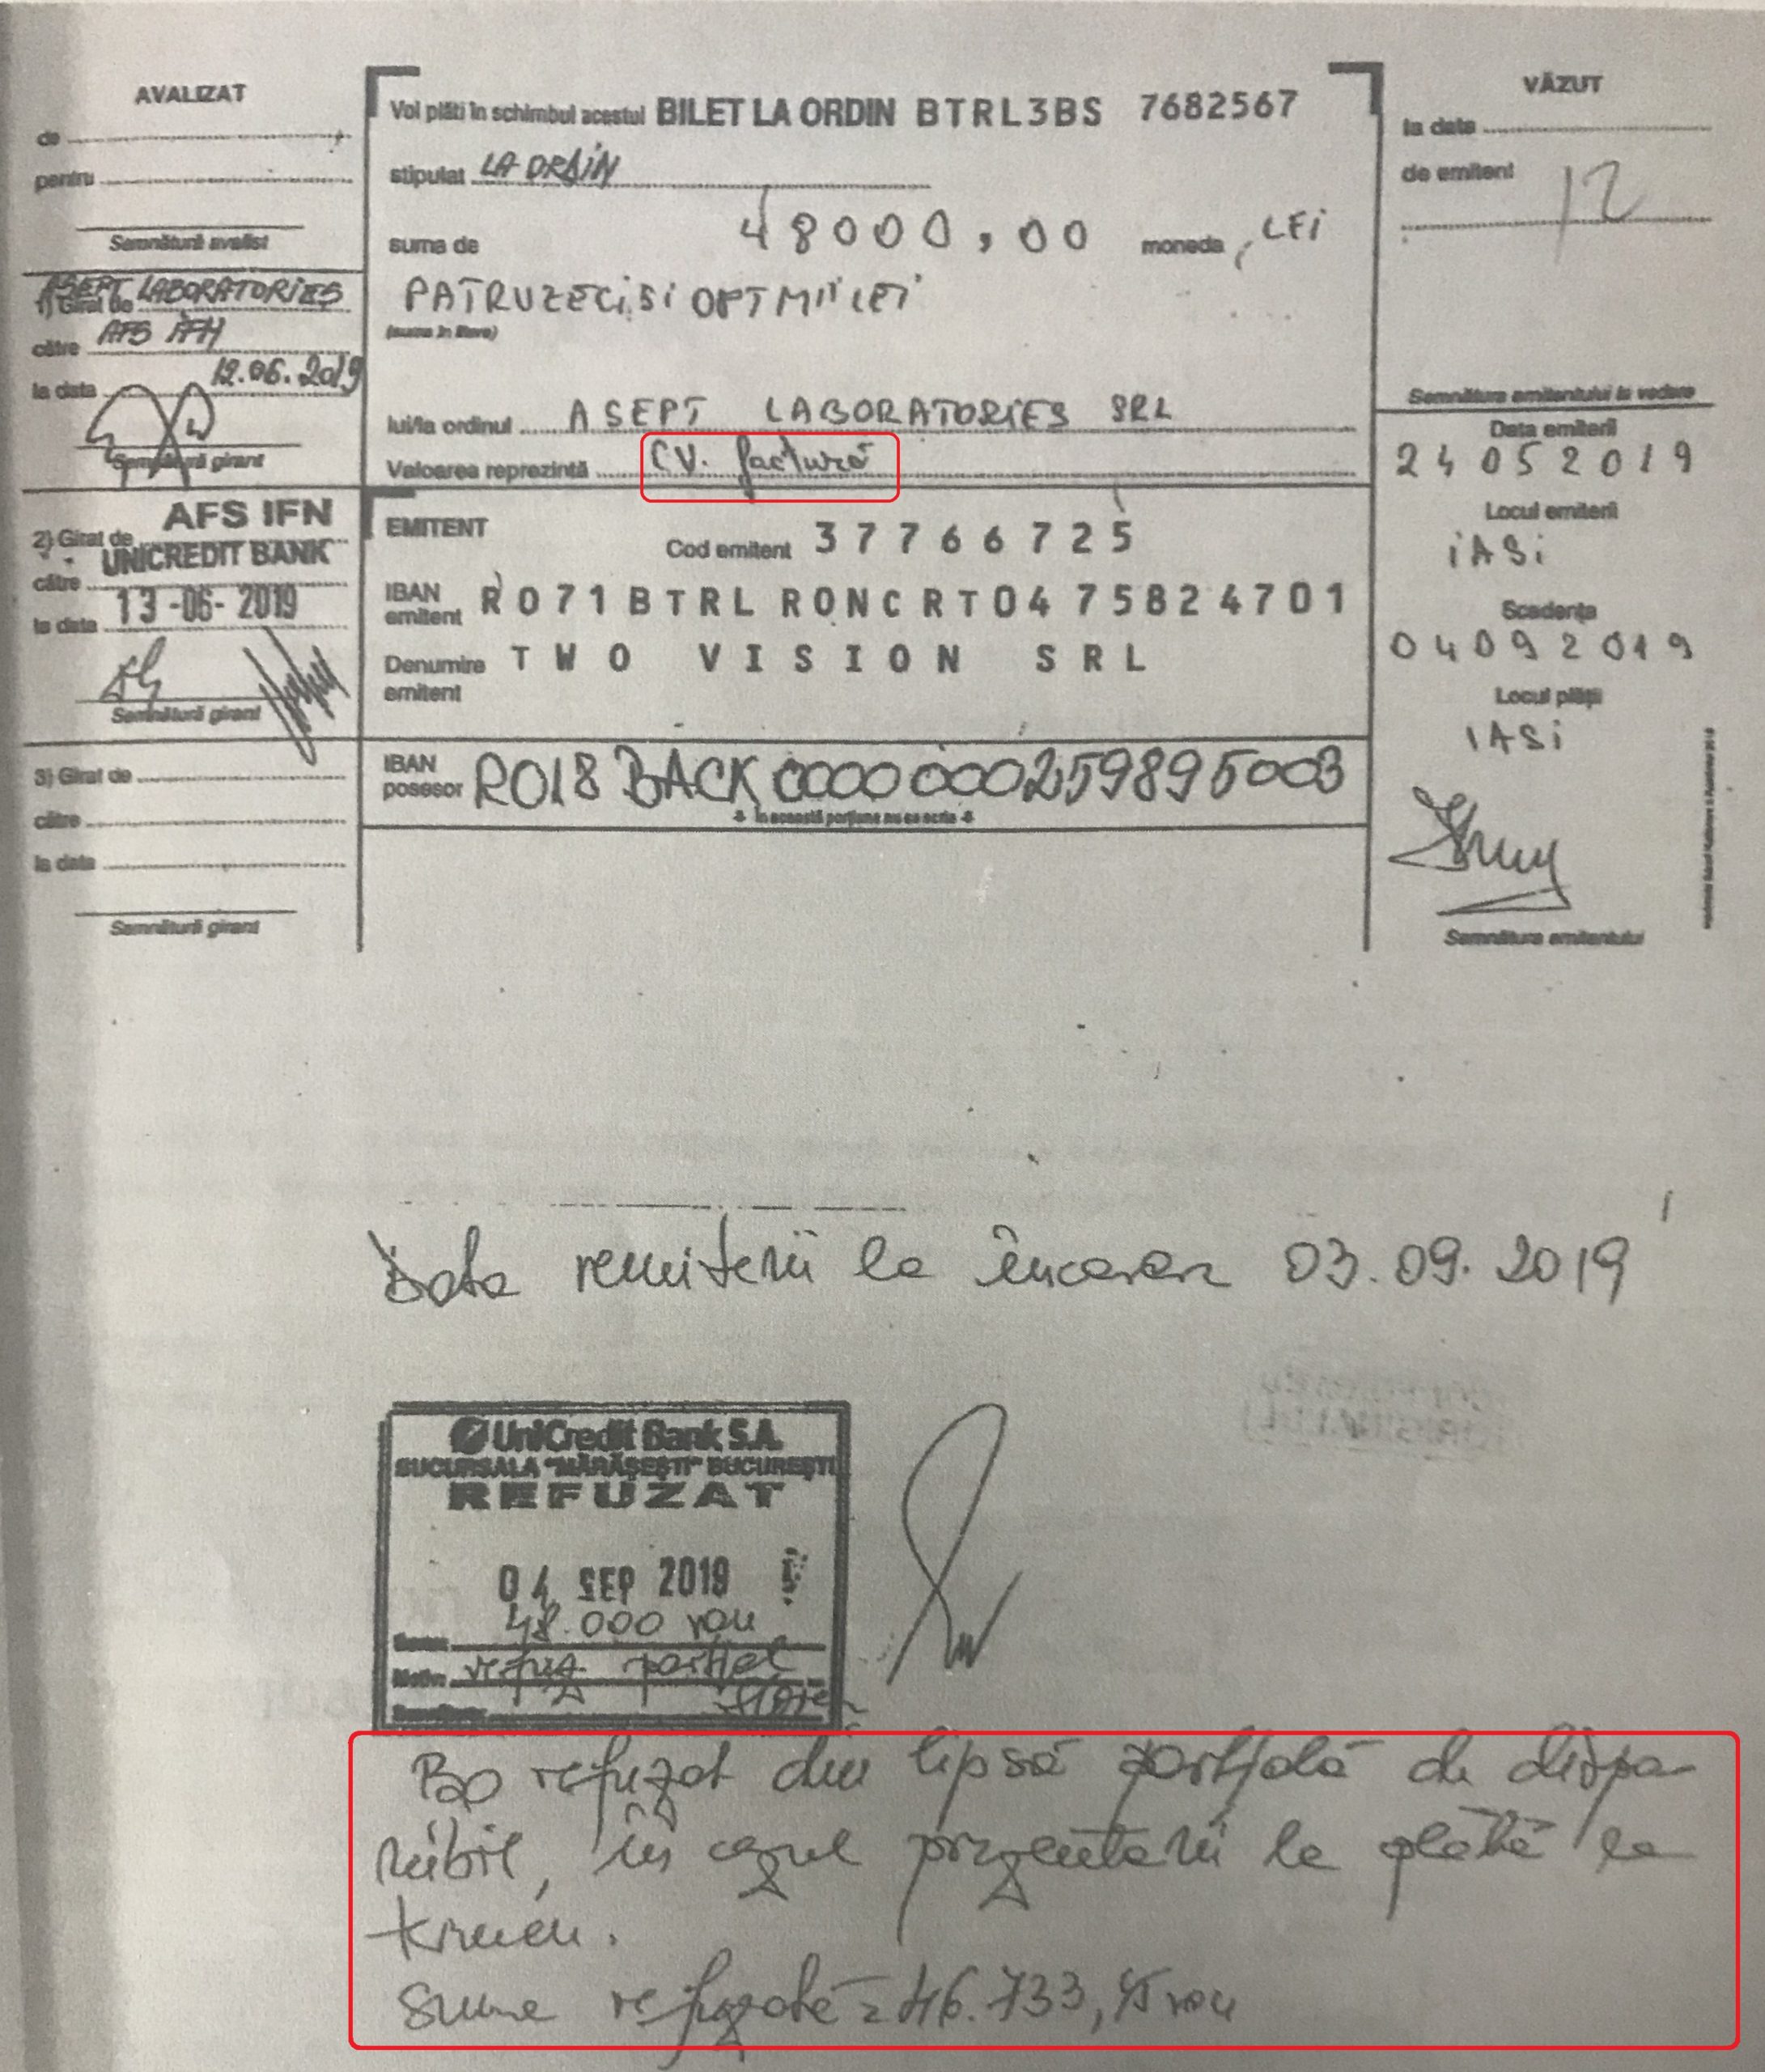 AVALIZAT
de
pentru
Semnătură avalist
ASEPT LABORATORIES
1) Girat de
către AFS IFN
la data 12.06.2019
Semnătură girant
AFS IFN
2) Girat de
UNICREDIT BANK
către
la data 13-06-2019
Semnătură girant
3) Girat de
către
la data
Semnătură girant
Voi plăti în schimbul acestui BILET LA ORDIN BTRL3BS 7682567
stipulat
suma de 48000,00 moneda LEI
PATRUZECI SI OPT MII LEI
(suma în litere)
lui/la ordinul ASEPT LABORATORIES SRL
Valoarea reprezintă CV. factură
EMITENT
Cod emitent 37766725
IBAN emitent RO71BTRLRONCRT0475824701
Denumire emitent TWO VISION SRL
IBAN posesor RO18 BACK 0000 000259895003
în această porțiune nu se scrie
VĂZUT
la data
de emitent 12
Semnătura emitentului la vedere
Data emiterii
24052019
Locul emiterii
IASI
Scadența
04092019
Locul plății
IASI
Semnătura emitentului
Data remiterii la încasare 03.09.2019
UniCredit Bank S.A.
SUCURSALA "MĂRĂȘEȘTI" BUCUREȘTI
REFUZAT
04 SEP 2019
48.000 ron
refuz parțial
BO refuzat din lipsă parțială de dispo-
nibil, în cazul prezentării la plată la
termen.
Suma refuzată = 46.733,45 ron